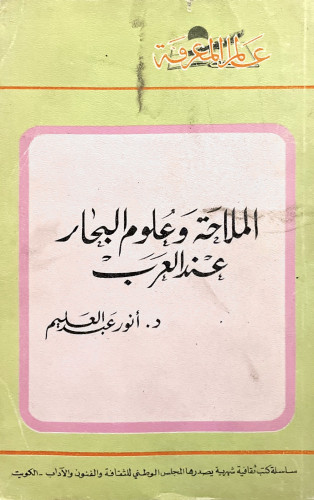 عالم المعرفة
الملاحة وعلوم البحار
عند العرب
د. أنور عبد العليم
سلسلة كتب ثقافية شهرية يصدرها المجلس الوطني للثقافة والفنون والآداب - الكويت